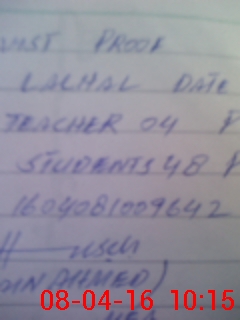 PROOF
LACHAL DATE
TEACHER 04 P
STUDENTS 48 P
1604081009642
DIN AHMED)
08-04-16 10:15